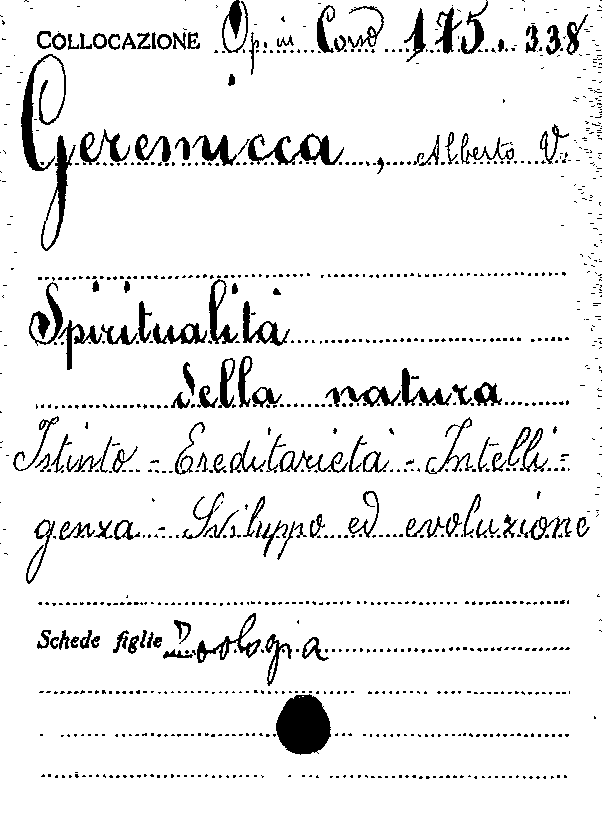 COLLOCAZIONE Op. in Corso 175. 338
Geremicca, Alberto V.
Spiritualità
della natura
Istinto - Ereditarietà - Intelli=
genza - Sviluppo ed evoluzione
Schede figlie Zoologia